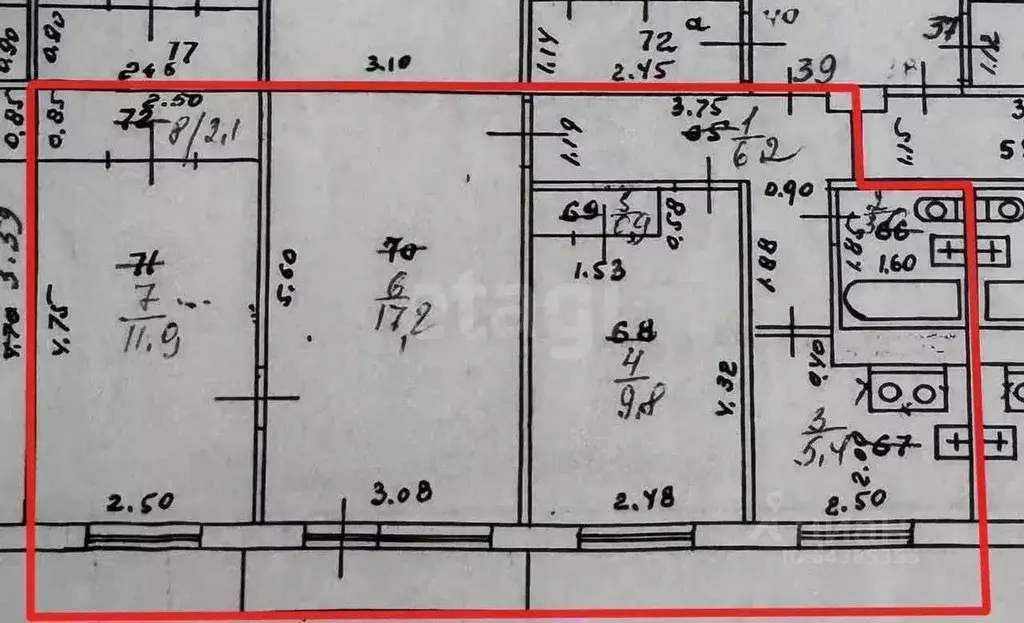 0.90
0.90
77
2.46
3.10
1.14
72
2.45
а
40
37
1.12
39
0.85
0.85
2.50
72
8/2,1
3.75
65
1
6,2
1.19
1.15
0.90
69
5
0.58
1.53
2
66
1.85
1.60
1.88
3.59
4.70
4.75
71
7
11.9
5.60
70
6
17,2
etagi
68
4
9,8
4.32
0.40
3
5,4
67
2.00
2.50
3.08
2.48
2.50